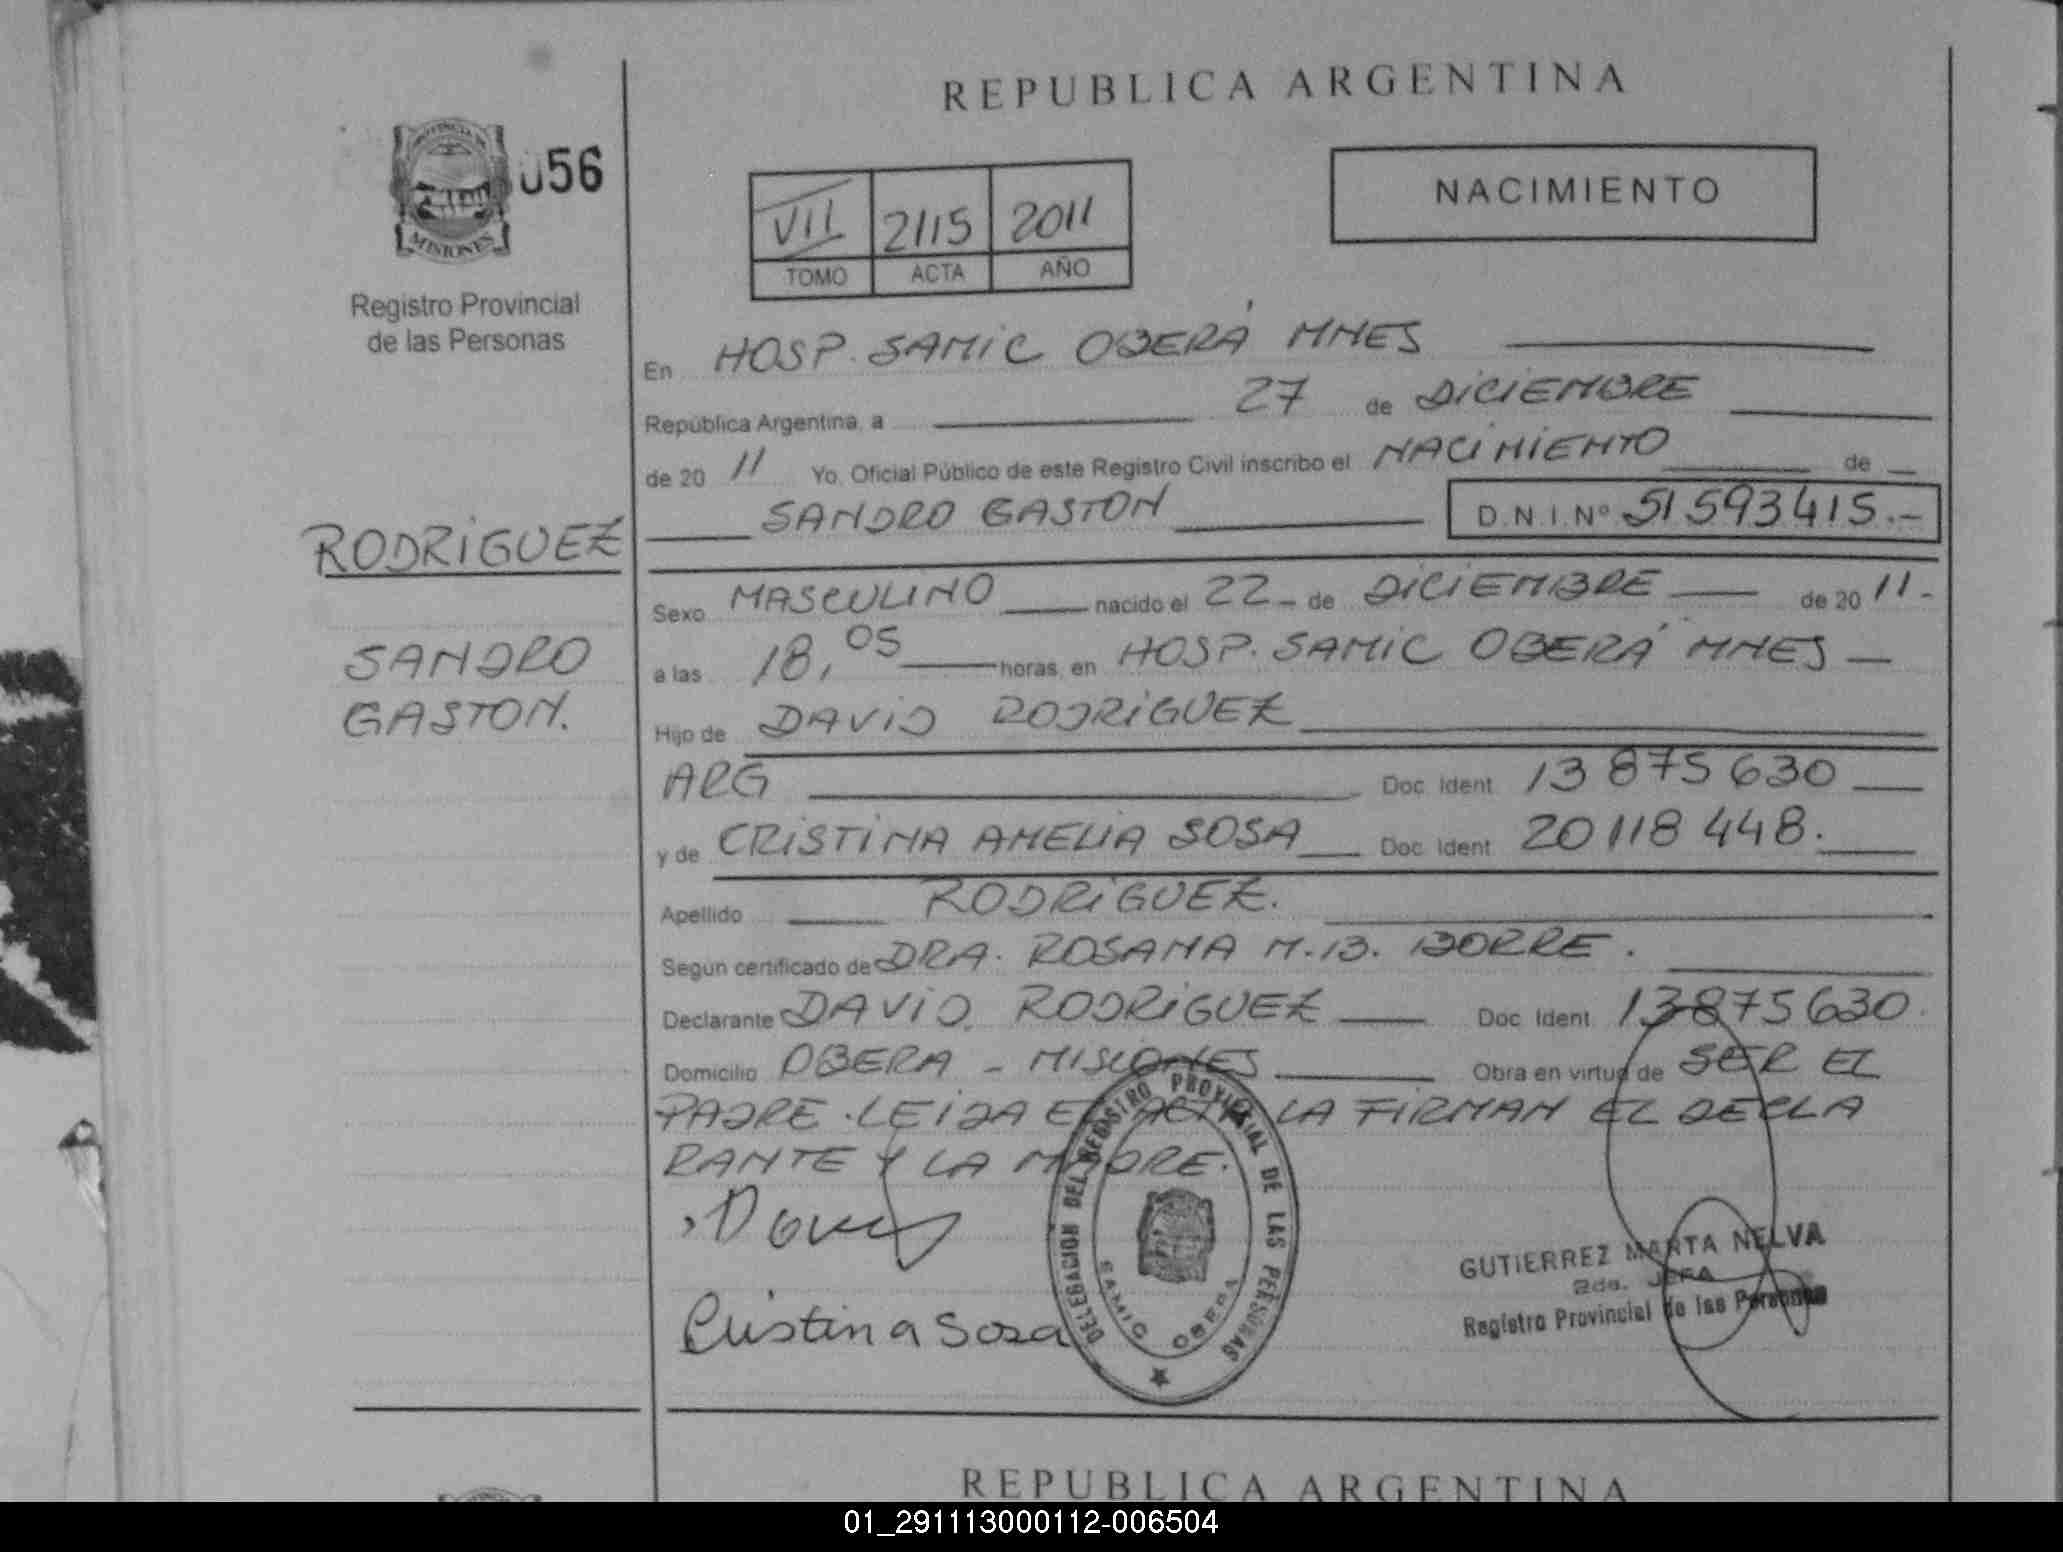 REPUBLICA ARGENTINA
PROVINCIA DE
MISIONES
056
Registro Provincial
de las Personas
VII 2115 2011
TOMO ACTA AÑO
NACIMIENTO
En HOSP. SAMIC OBERÁ MNES
República Argentina, a 27 de DICIEMBRE
de 20 11 Yo, Oficial Público de este Registro Civil inscribo el NACIMIENTO de
SANDRO GASTON D.N.I.Nº 51593415.-
RODRIGUEZ
SANDRO
GASTON.
Sexo MASCULINO nacido el 22 - de DICIEMBRE de 20 11.-
a las 18,05 horas, en HOSP. SAMIC OBERÁ MNES
Hijo de DAVID RODRIGUEZ
ARG Doc. Ident. 13 875 630
y de CRISTINA AMELIA SOSA Doc. Ident. 20 118 448.
Apellido RODRIGUEZ.
Según certificado de DRA. ROSANA M.B. BORRE.
Declarante DAVID RODRIGUEZ Doc. Ident. 13875630.
Domicilio OBERA - MISIONES Obra en virtud de SER EL
PADRE. LEIDA EL ACTA LA FIRMAN EL DECLA
RANTE Y LA MADRE.
Cristina Sosa
DELEGACION DEL REGISTRO PROVINCIAL DE LAS PERSONAS
SAMIC OBERA
GUTIERREZ MARTA NELVA
2da. JEFA
Registro Provincial de las Personas
REPUBLICA ARGENTINA
01_291113000112-006504